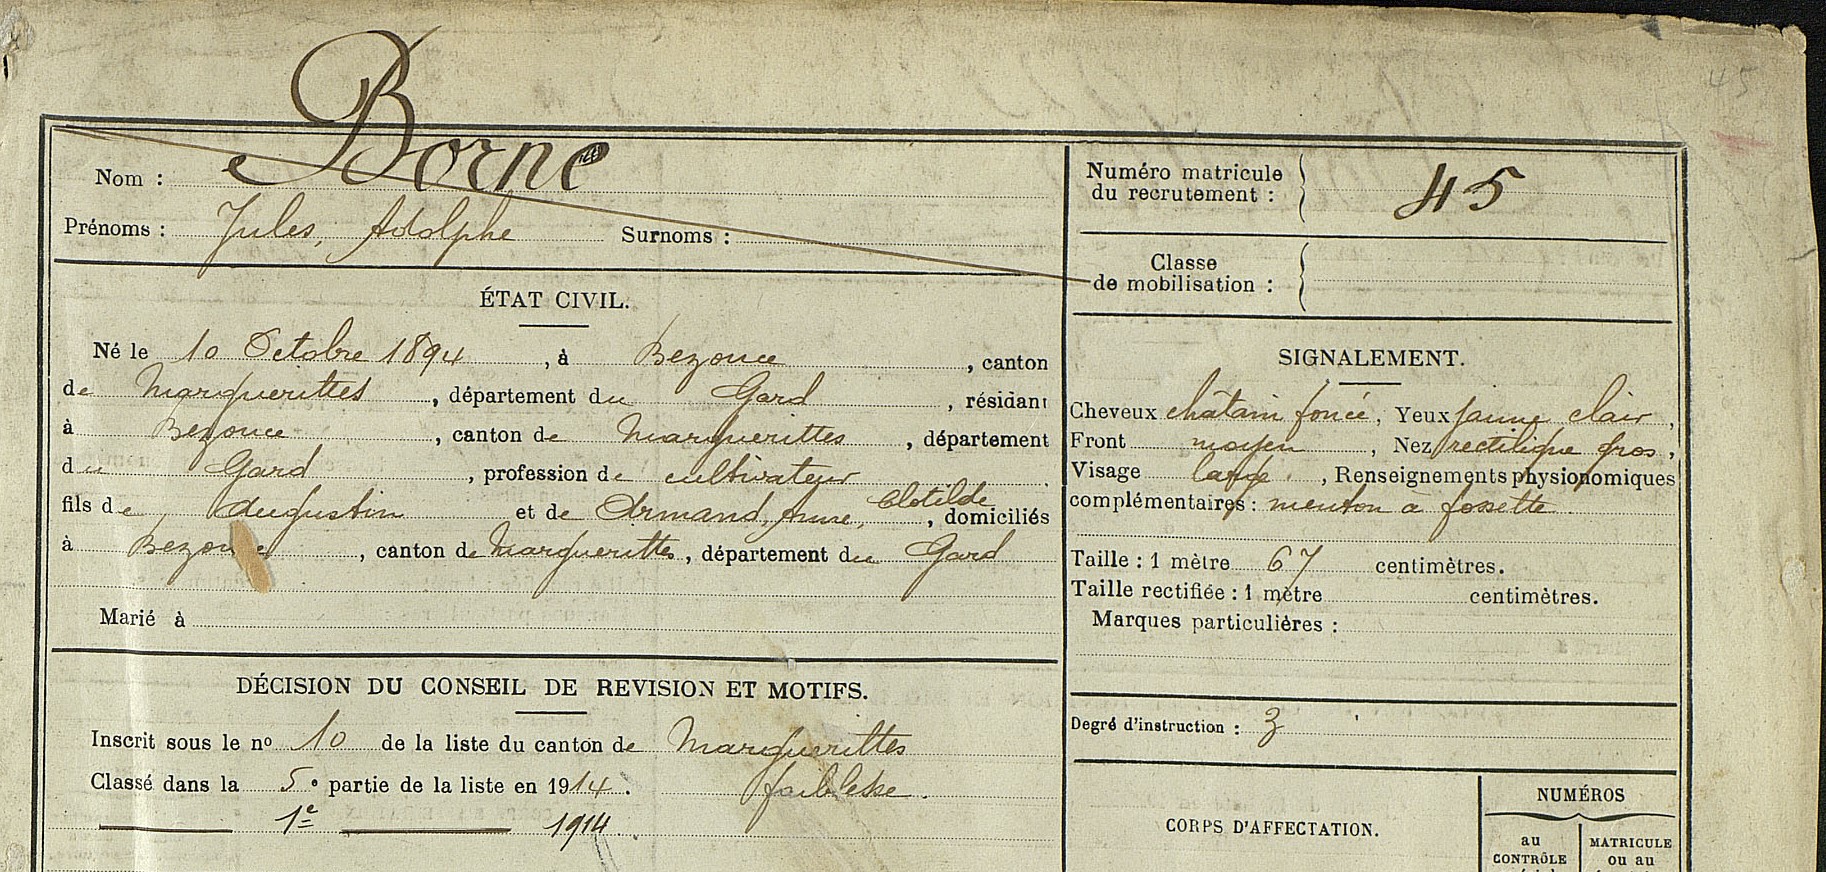 45
Nom : Borne
Prénoms : Jules, Adolphe Surnoms :
ÉTAT CIVIL.
Né le 10 Octobre 1894, à Bezouce, canton
de Marguerittes, département du Gard, résidant
à Bezouce, canton de Marguerittes, département
du Gard, profession de cultivateur
fils de Augustin et de Armand, Anne, Clotilde, domiciliés
à Bezouce, canton de Marguerittes, département du Gard
Marié à
DÉCISION DU CONSEIL DE REVISION ET MOTIFS.
Inscrit sous le nº 10 de la liste du canton de Marguerittes
Classé dans la 5e partie de la liste en 1914. faiblesse.
1e 1914
Numéro matricule
du recrutement : 45
Classe
de mobilisation :
SIGNALEMENT.
Cheveux châtain foncé, Yeux jaune clair,
Front moyen, Nez rectiligne gros,
Visage large., Renseignements physionomiques
complémentaires : menton à fossette
Taille : 1 mètre 67 centimètres.
Taille rectifiée : 1 mètre centimètres.
Marques particulières :
Degré d'instruction : 3
CORPS D'AFFECTATION.
NUMÉROS
au
CONTRÔLE
MATRICULE
ou au